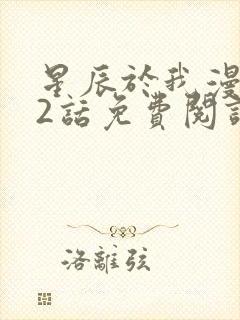 星辰於我漫
2話免費閱讀
洛離弦